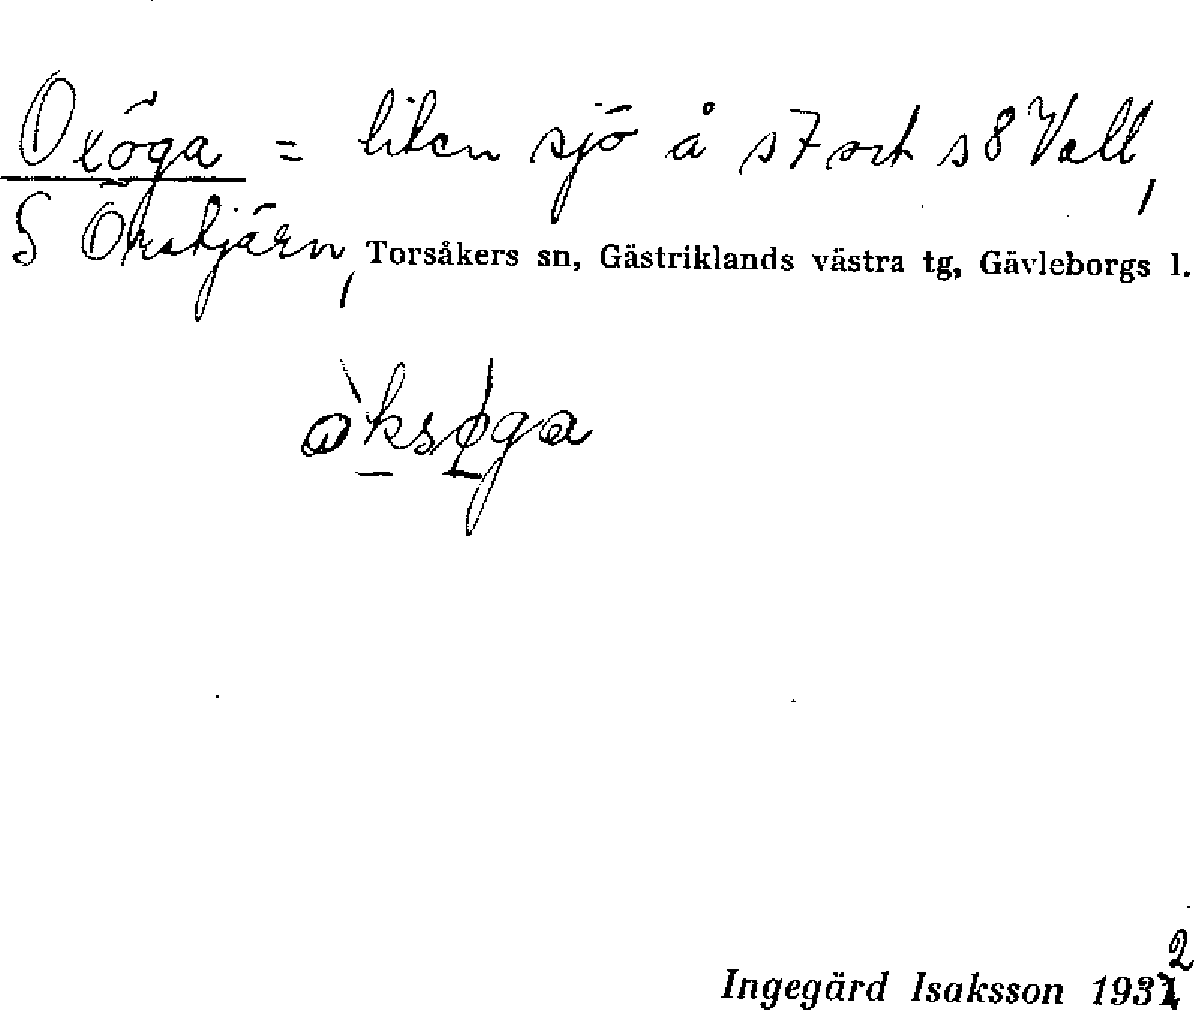 Oxöga = liten sjö å s7 och s8 Vall,
S Öksstjärn, Torsåkers sn, Gästriklands västra tg, Gävleborgs l.
òksǿga
Ingegärd Isaksson 1932